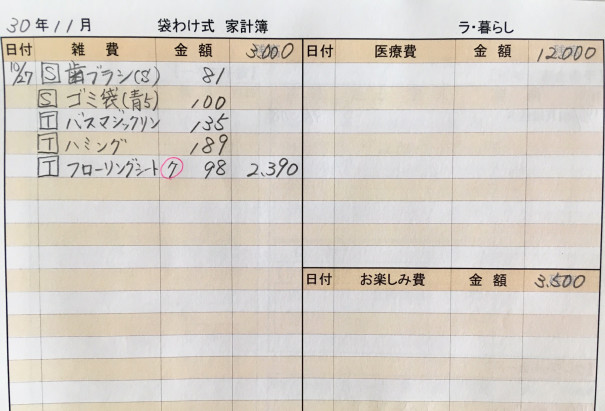 30年11月 袋わけ式 家計簿 ラ・暮らし
日付 雑費 金額 3,000 日付 医療費 金額 12,000
10/27 S 歯ブラシ(S) 81
S ゴミ袋(青5) 100
T バスマジックリン 135
T ハミング 189
T フローリングシート ク 98 2,390
日付 お楽しみ費 金額 3,500